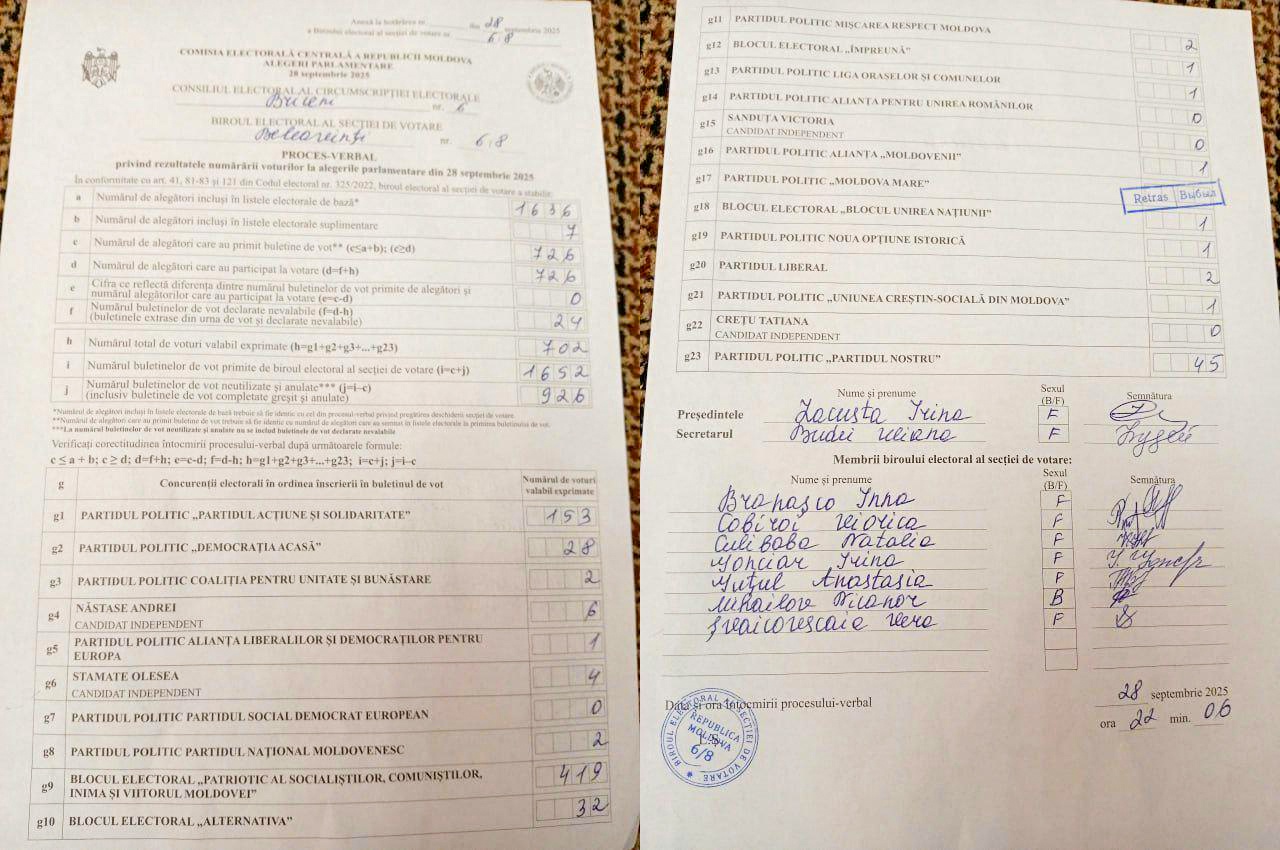 Anexă la hotărârea nr. din 28 septembrie 2025
a Biroului electoral al secției de votare nr. 6/8
COMISIA ELECTORALĂ CENTRALĂ A REPUBLICII MOLDOVA
ALEGERI PARLAMENTARE
28 septembrie 2025
CONSILIUL ELECTORAL AL CIRCUMSCRIPȚIEI ELECTORALE
Briceni nr. 6
BIROUL ELECTORAL AL SECȚIEI DE VOTARE
nr. 6/8
PROCES-VERBAL
privind rezultatele numărării voturilor la alegerile parlamentare din 28 septembrie 2025
În conformitate cu art. 41, 81-83 și 121 din Codul electoral nr. 325/2022, biroul electoral al secției de votare a stabilit:
a Numărul de alegători incluși în listele electorale de bază* 1636
b Numărul de alegători incluși în listele electorale suplimentare 7
c Numărul de alegători care au primit buletine de vot** (c≤a+b); (c≥d) 726
d Numărul de alegători care au participat la votare (d=f+h) 726
e Cifra ce reflectă diferența dintre numărul buletinelor de vot primite de alegători și
numărul alegătorilor care au participat la votare (e=c-d) 0
f Numărul buletinelor de vot declarate nevalabile (f=d-h)
(buletinele extrase din urna de vot și declarate nevalabile) 24
h Numărul total de voturi valabil exprimate (h=g1+g2+g3+...+g23) 702
i Numărul buletinelor de vot primite de biroul electoral al secției de votare (i=c+j) 1652
j Numărul buletinelor de vot neutilizate și anulate*** (j=i–c)
(inclusiv buletinele de vot completate greșit și anulate) 926
*Numărul de alegători incluși în listele electorale de bază trebuie să fie identic cu cel din procesul-verbal privind pregătirea deschiderii secției de votare.
**Numărul de alegători care au primit buletine de vot trebuie să fie identic cu numărul de alegători care au semnat în listele electorale la primirea buletinului de vot.
***La numărul buletinelor de vot neutilizate și anulate nu se includ buletinele de vot declarate nevalabile
Verificați corectitudinea întocmirii procesului-verbal după următoarele formule:
c ≤ a + b; c ≥ d; d=f+h; e=c-d; f=d-h; h=g1+g2+g3+...+g23; i=c+j; j=i–c
g Concurenții electorali în ordinea înscrierii în buletinul de vot Numărul de voturi
valabil exprimate
g1 PARTIDUL POLITIC „PARTIDUL ACȚIUNE ȘI SOLIDARITATE” 153
g2 PARTIDUL POLITIC „DEMOCRAȚIA ACASĂ” 28
g3 PARTIDUL POLITIC COALIȚIA PENTRU UNITATE ȘI BUNĂSTARE 2
g4 NĂSTASE ANDREI 6
CANDIDAT INDEPENDENT
g5 PARTIDUL POLITIC ALIANȚA LIBERALILOR ȘI DEMOCRAȚILOR PENTRU
EUROPA 1
g6 STAMATE OLESEA 4
CANDIDAT INDEPENDENT
g7 PARTIDUL POLITIC PARTIDUL SOCIAL DEMOCRAT EUROPEAN 0
g8 PARTIDUL POLITIC PARTIDUL NAȚIONAL MOLDOVENESC 2
g9 BLOCUL ELECTORAL „PATRIOTIC AL SOCIALIȘTILOR, COMUNIȘTILOR,
INIMA ȘI VIITORUL MOLDOVEI” 419
g10 BLOCUL ELECTORAL „ALTERNATIVA” 32
g11 PARTIDUL POLITIC MIȘCAREA RESPECT MOLDOVA 2
g12 BLOCUL ELECTORAL „ÎMPREUNĂ” 1
g13 PARTIDUL POLITIC LIGA ORAȘELOR ȘI COMUNELOR 1
g14 PARTIDUL POLITIC ALIANȚA PENTRU UNIREA ROMÂNILOR 0
g15 SANDUȚA VICTORIA 0
CANDIDAT INDEPENDENT
g16 PARTIDUL POLITIC ALIANȚA „MOLDOVENII” 1
g17 PARTIDUL POLITIC „MOLDOVA MARE” Retras Выбыл
g18 BLOCUL ELECTORAL „BLOCUL UNIREA NAȚIUNII” 1
g19 PARTIDUL POLITIC NOUA OPȚIUNE ISTORICĂ 1
g20 PARTIDUL LIBERAL 2
g21 PARTIDUL POLITIC „UNIUNEA CREȘTIN-SOCIALĂ DIN MOLDOVA” 1
g22 CREȚU TATIANA 0
CANDIDAT INDEPENDENT
g23 PARTIDUL POLITIC „PARTIDUL NOSTRU” 45
Nume și prenume Sexul (B/F) Semnătura
Președintele Lacusta Irina F
Secretarul F
Membrii biroului electoral al secției de votare:
Nume și prenume Sexul (B/F) Semnătura
Inna F
Cobiroi Viorica F
Culibaba Natalia F
Irina F
Anastasia F
Nicanor B
Vera F
Data și ora întocmirii procesului-verbal 28 septembrie 2025
ora 22 min. 06
BIROUL ELECTORAL AL SECȚIEI DE VOTARE
REPUBLICA
MOLDOVA
L.Ș.
6/8